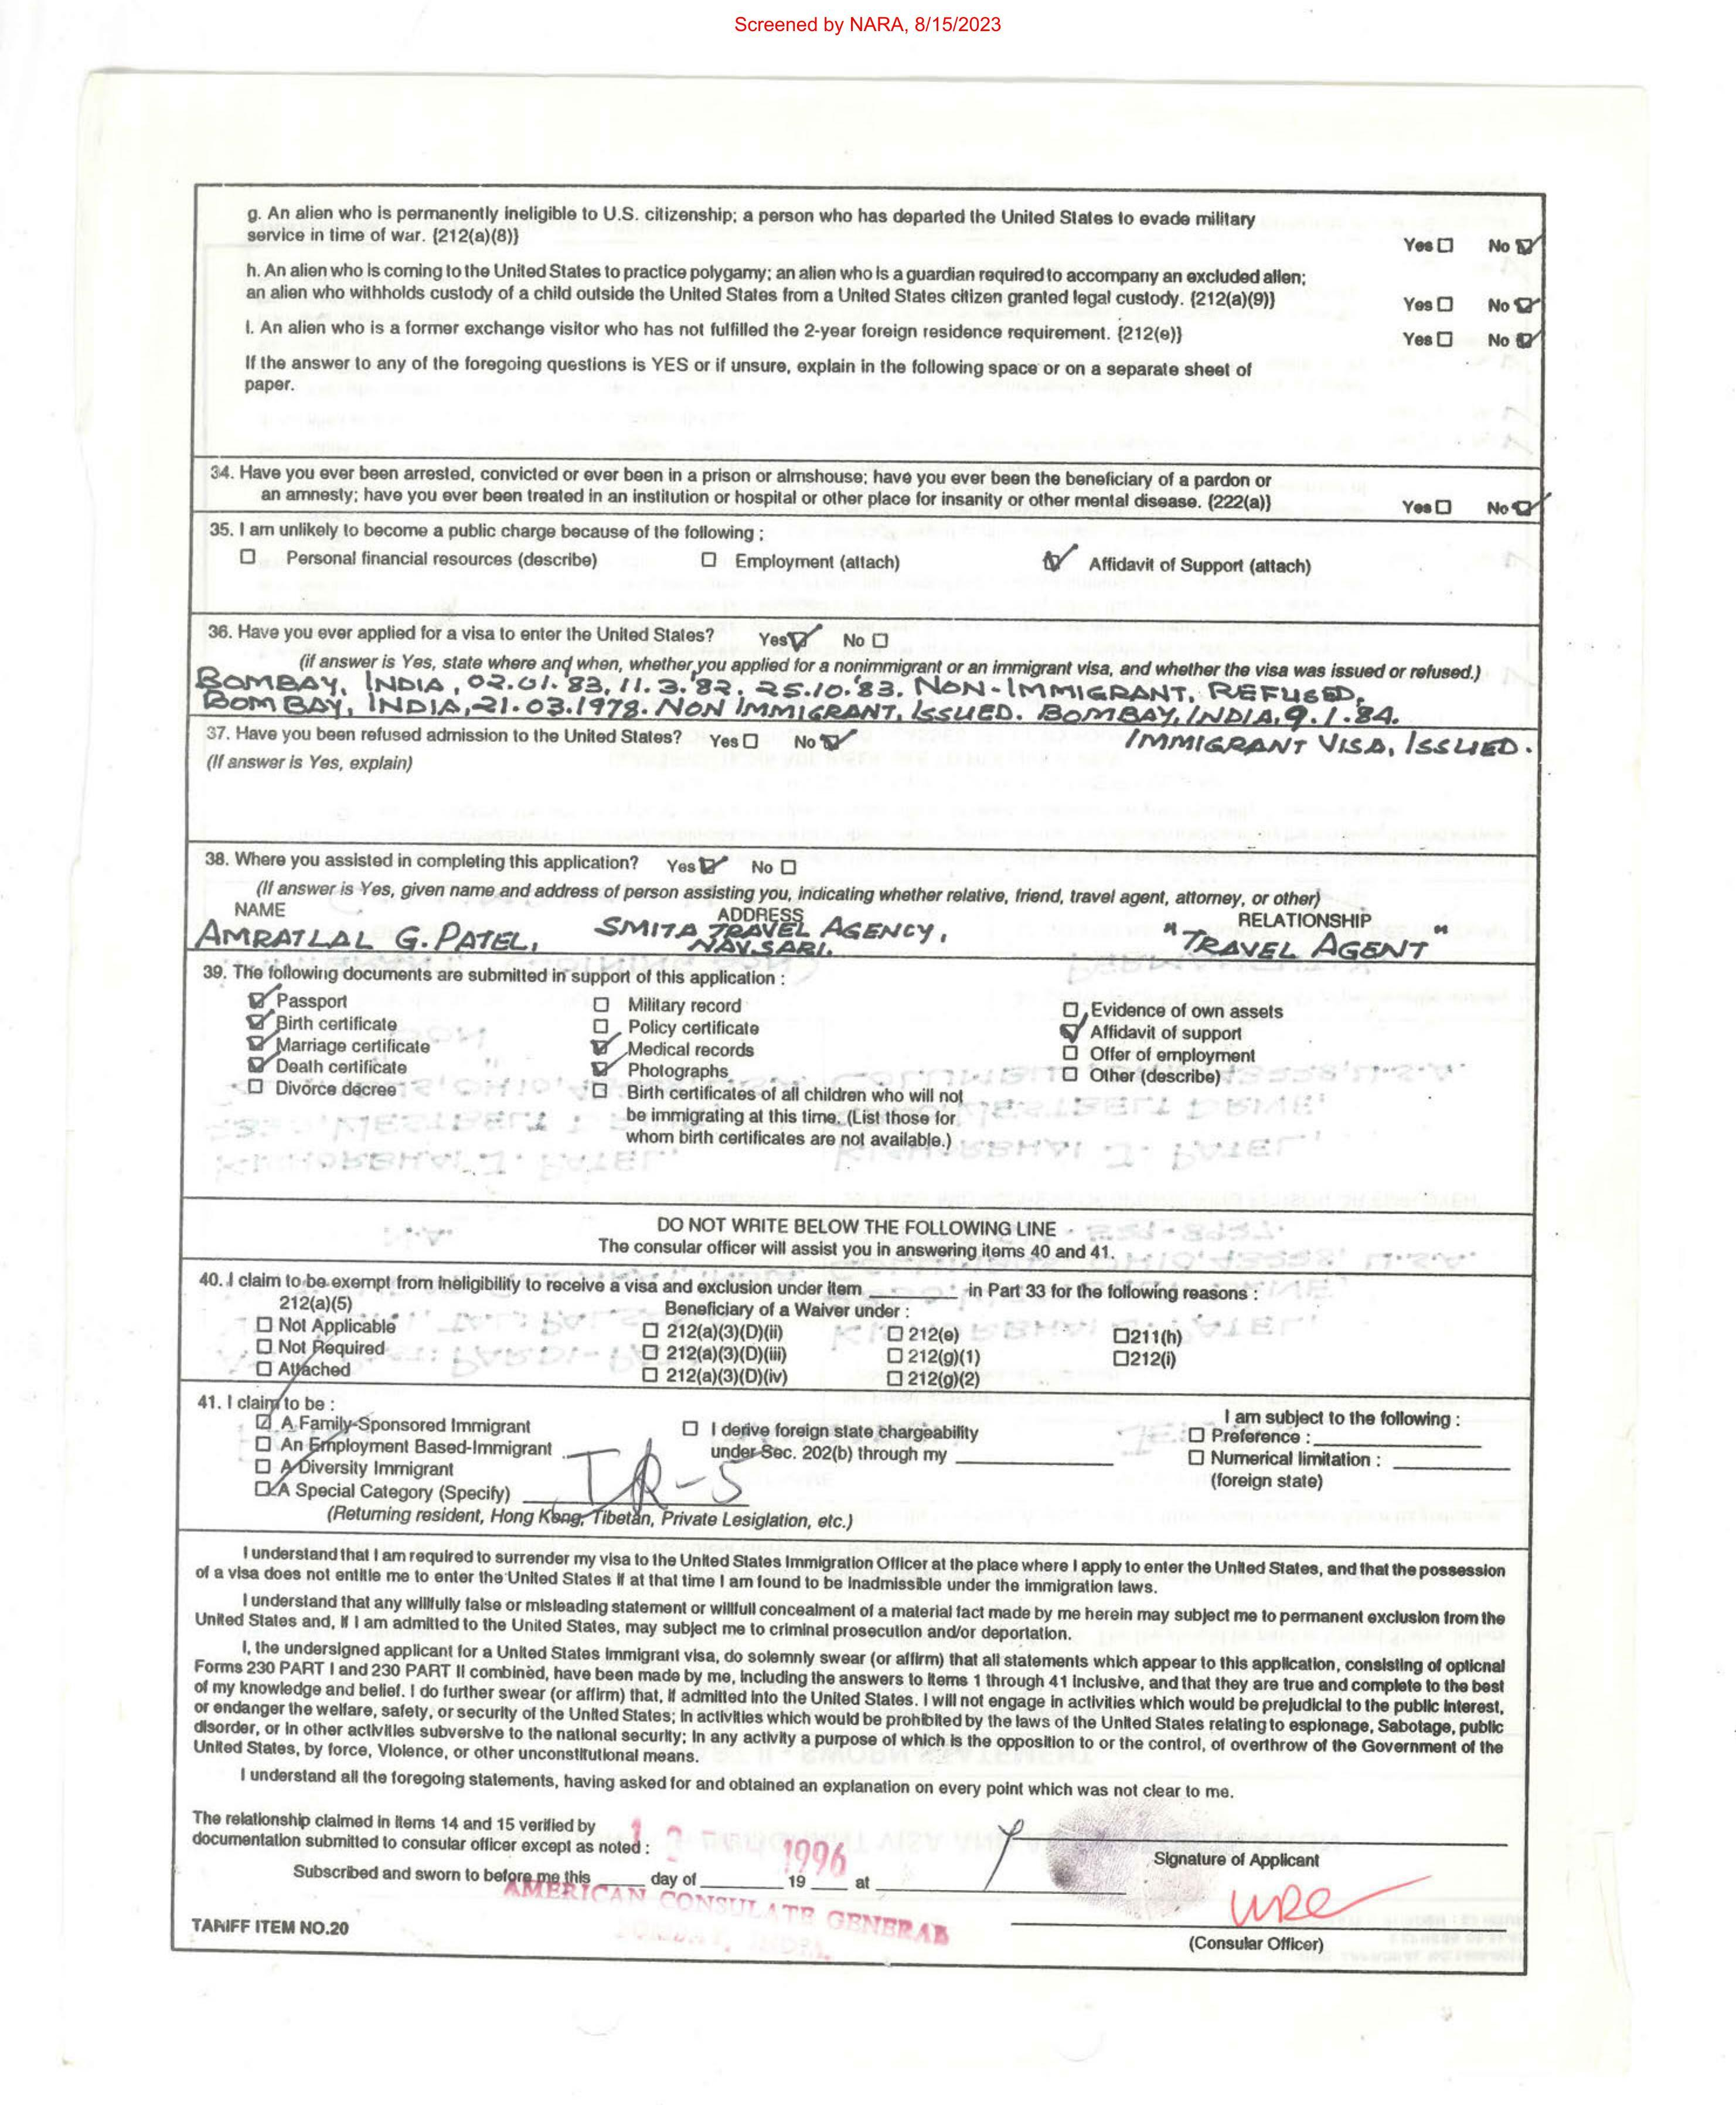 Screened by NARA, 8/15/2023
g. An alien who is permanently ineligible to U.S. citizenship; a person who has departed the United States to evade military
service in time of war. {212(a)(8)} Yes No
h. An alien who is coming to the United States to practice polygamy; an alien who is a guardian required to accompany an excluded alien;
an alien who withholds custody of a child outside the United States from a United States citizen granted legal custody. {212(a)(9)} Yes No
i. An alien who is a former exchange visitor who has not fulfilled the 2-year foreign residence requirement. {212(e)} Yes No
If the answer to any of the foregoing questions is YES or if unsure, explain in the following space or on a separate sheet of
paper.
34. Have you ever been arrested, convicted or ever been in a prison or almshouse; have you ever been the beneficiary of a pardon or
an amnesty; have you ever been treated in an institution or hospital or other place for insanity or other mental disease. {222(a)} Yes No
35. I am unlikely to become a public charge because of the following :
Personal financial resources (describe) Employment (attach) Affidavit of Support (attach)
36. Have you ever applied for a visa to enter the United States? Yes No
(if answer is Yes, state where and when, whether you applied for a nonimmigrant or an immigrant visa, and whether the visa was issued or refused.)
BOMBAY, INDIA, 02.01.'83, 11.3.'82, 25.10.'83. NON-IMMIGRANT, REFUSED,
BOMBAY, INDIA, 21.03.1978. NON IMMIGRANT, ISSUED. BOMBAY, INDIA, 9.1.84.
37. Have you been refused admission to the United States? Yes No IMMIGRANT VISA, ISSUED.
(If answer is Yes, explain)
38. Where you assisted in completing this application? Yes No
(If answer is Yes, given name and address of person assisting you, indicating whether relative, friend, travel agent, attorney, or other)
NAME ADDRESS RELATIONSHIP
AMRATLAL G. PATEL, SMITA TRAVEL AGENCY, "TRAVEL AGENT"
NAVSARI.
39. The following documents are submitted in support of this application :
Passport Military record Evidence of own assets
Birth certificate Policy certificate Affidavit of support
Marriage certificate Medical records Offer of employment
Death certificate Photographs Other (describe)
Divorce decree Birth certificates of all children who will not
be immigrating at this time. (List those for
whom birth certificates are not available.)
DO NOT WRITE BELOW THE FOLLOWING LINE
The consular officer will assist you in answering items 40 and 41.
40. I claim to be exempt from ineligibility to receive a visa and exclusion under item in Part 33 for the following reasons :
212(a)(5) Beneficiary of a Waiver under :
Not Applicable 212(a)(3)(D)(ii) 212(e) 211(h)
Not Required 212(a)(3)(D)(iii) 212(g)(1) 212(i)
Attached 212(a)(3)(D)(iv) 212(g)(2)
41. I claim to be : I am subject to the following :
A Family-Sponsored Immigrant I derive foreign state chargeability Preference :
An Employment Based-Immigrant under Sec. 202(b) through my Numerical limitation :
A Diversity Immigrant (foreign state)
A Special Category (Specify)
(Returning resident, Hong Kong, Tibetan, Private Lesiglation, etc.)
I understand that I am required to surrender my visa to the United States Immigration Officer at the place where I apply to enter the United States, and that the possession
of a visa does not entitle me to enter the United States if at that time I am found to be inadmissible under the immigration laws.
I understand that any willfully false or misleading statement or willfull concealment of a material fact made by me herein may subject me to permanent exclusion from the
United States and, if I am admitted to the United States, may subject me to criminal prosecution and/or deportation.
I, the undersigned applicant for a United States immigrant visa, do solemnly swear (or affirm) that all statements which appear to this application, consisting of optional
Forms 230 PART I and 230 PART II combined, have been made by me, including the answers to items 1 through 41 inclusive, and that they are true and complete to the best
of my knowledge and belief. I do further swear (or affirm) that, if admitted into the United States. I will not engage in activities which would be prejudicial to the public interest,
or endanger the welfare, safety, or security of the United States; in activities which would be prohibited by the laws of the United States relating to espionage, Sabotage, public
disorder, or in other activities subversive to the national security; in any activity a purpose of which is the opposition to or the control, of overthrow of the Government of the
United States, by force, Violence, or other unconstitutional means.
I understand all the foregoing statements, having asked for and obtained an explanation on every point which was not clear to me.
The relationship claimed in items 14 and 15 verified by
documentation submitted to consular officer except as noted :
1996
Signature of Applicant
Subscribed and sworn to before me this day of 19 at
AMERICAN CONSULATE GENERAL
BOMBAY, INDIA
TARIFF ITEM NO.20
(Consular Officer)